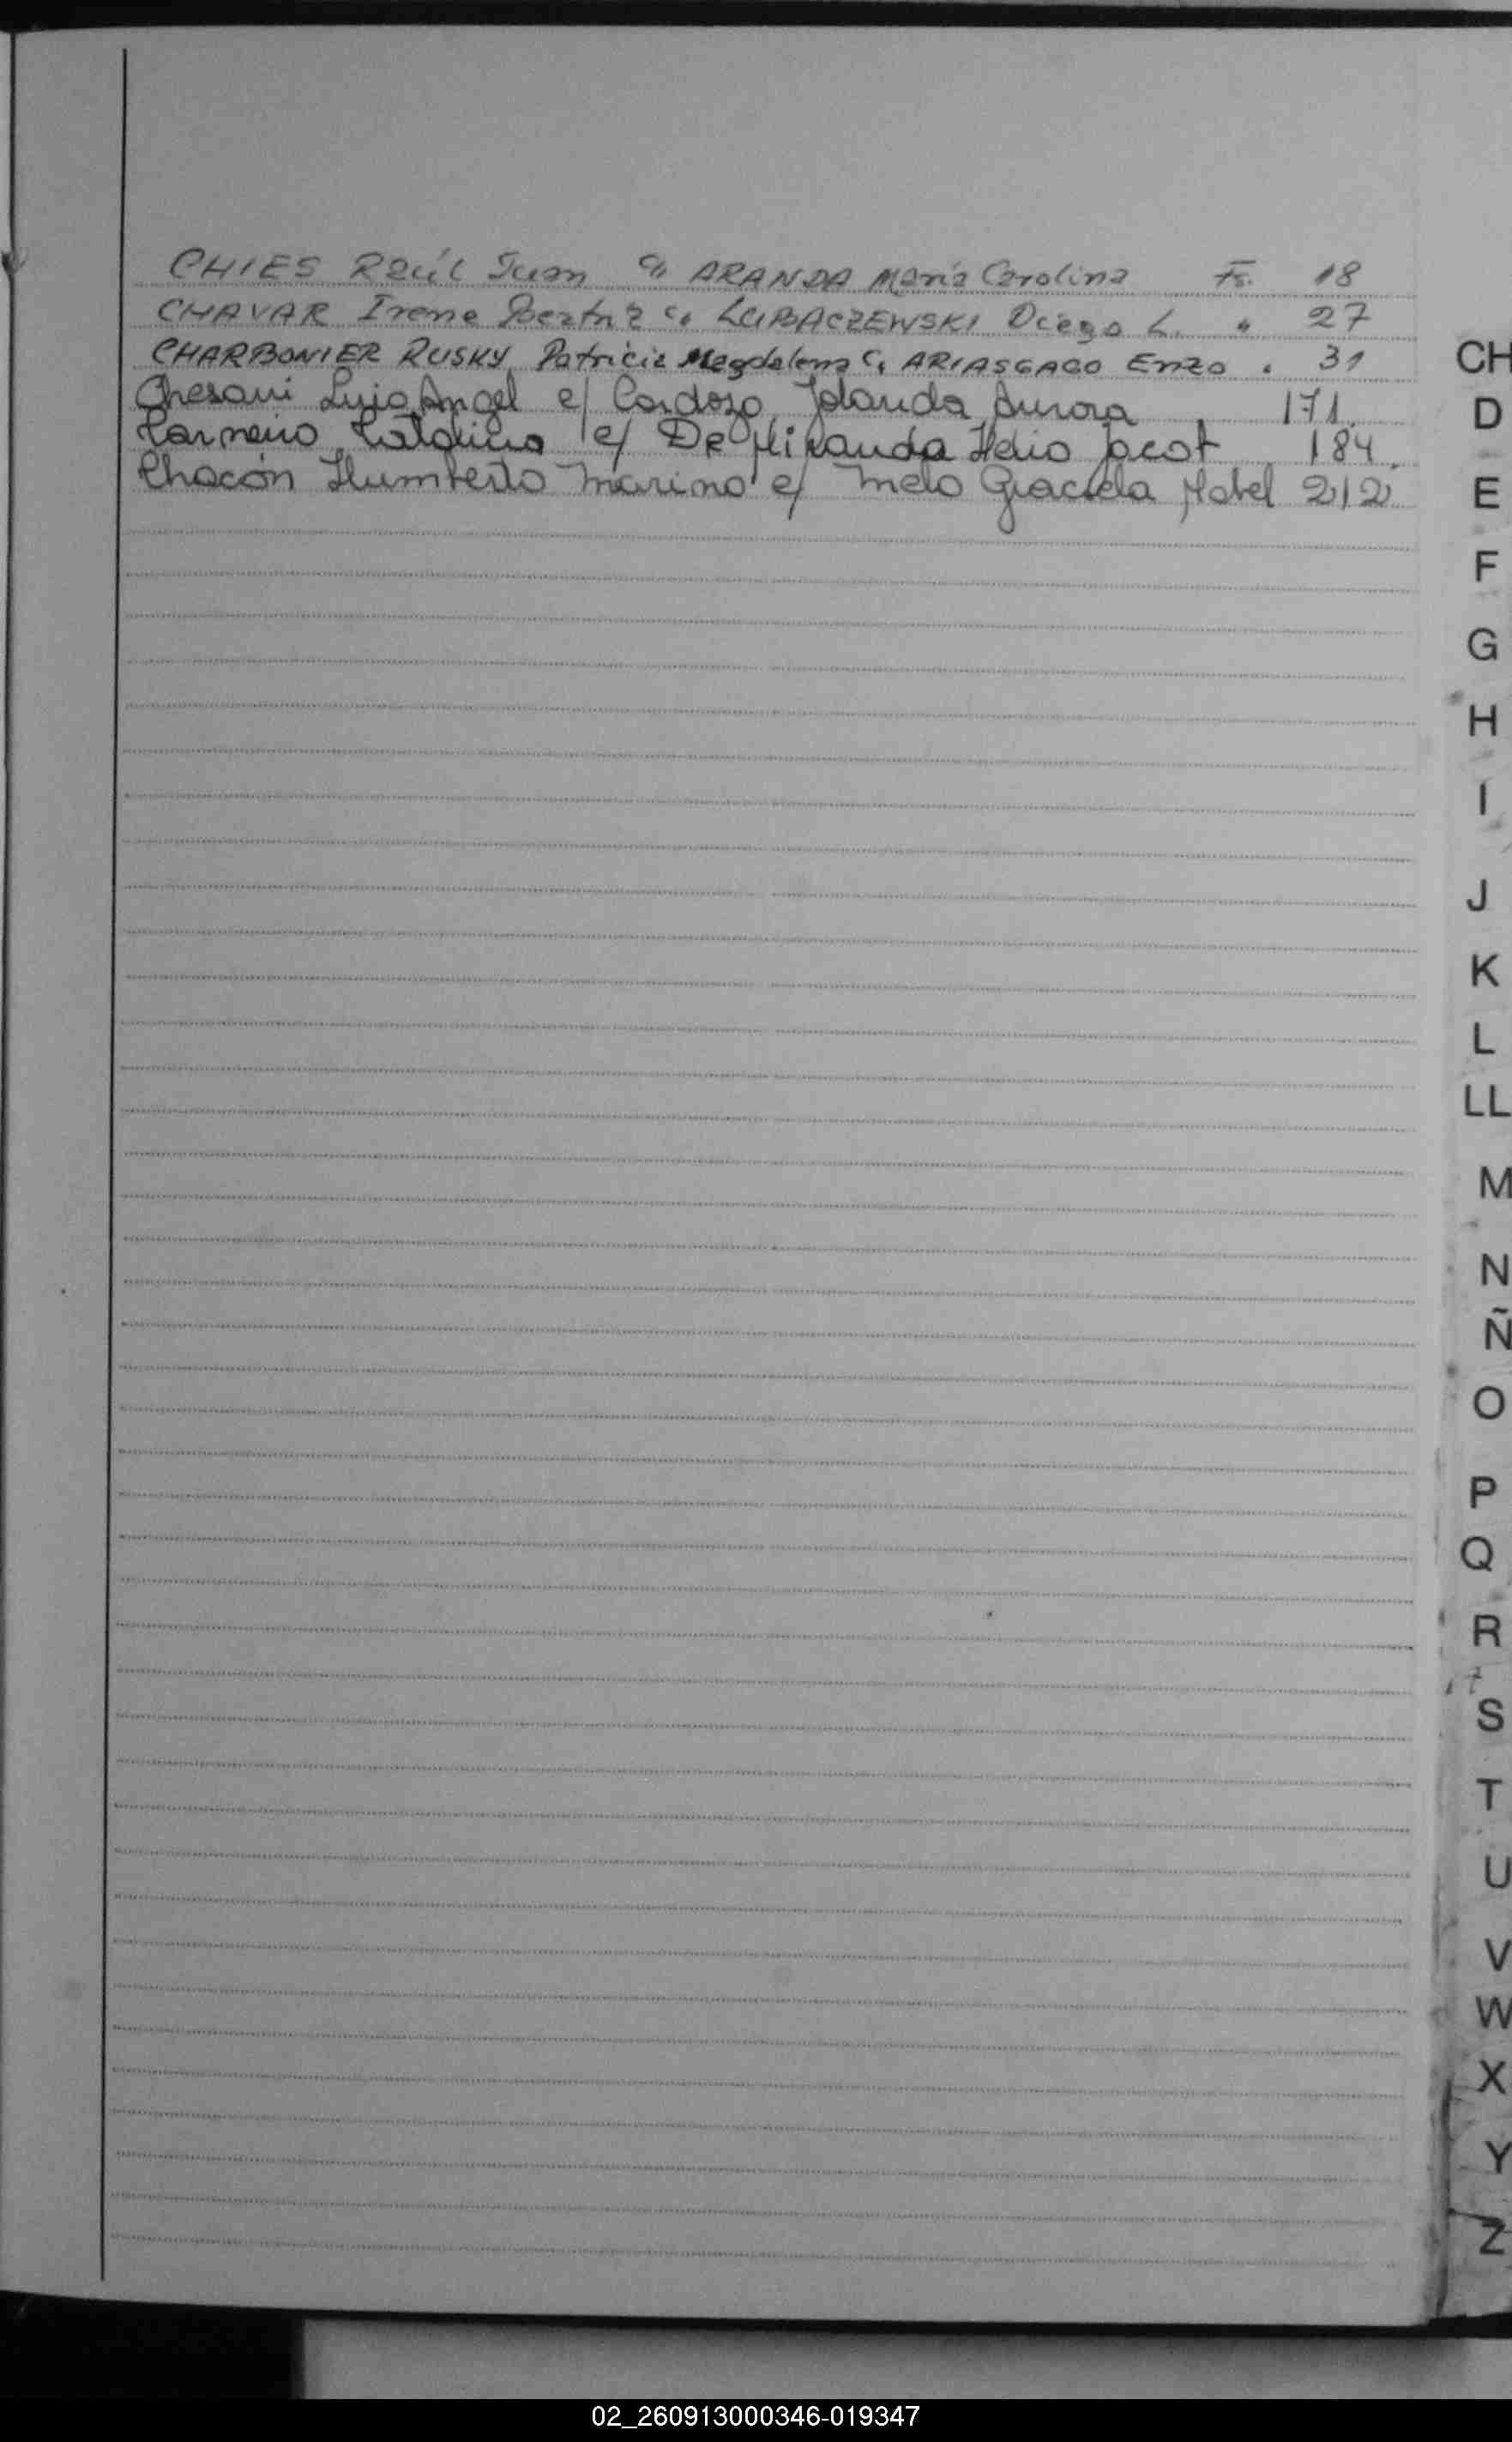 CHIES Raúl Juan c/ ARANDA María Carolina Fs. 18
CHAVAR Irene Beatriz c/ LUBACZEWSKI Diego L. " 27
CHARBONIER RUSKY, Patricia Magdalena c/ ARIASGAGO Enzo " 31
Chesani Luis Angel c/ Cardozo Jolanda Aurora 171
Carneiro c/ De Miranda Helio Jacot 184
Chacón Humberto Marino c/ Melo Graciela Mabel 212
CH
D
E
F
G
H
I
J
K
L
LL
M
N
Ñ
O
P
Q
R
S
T
U
V
W
X
Y
Z
02_260913000346-019347